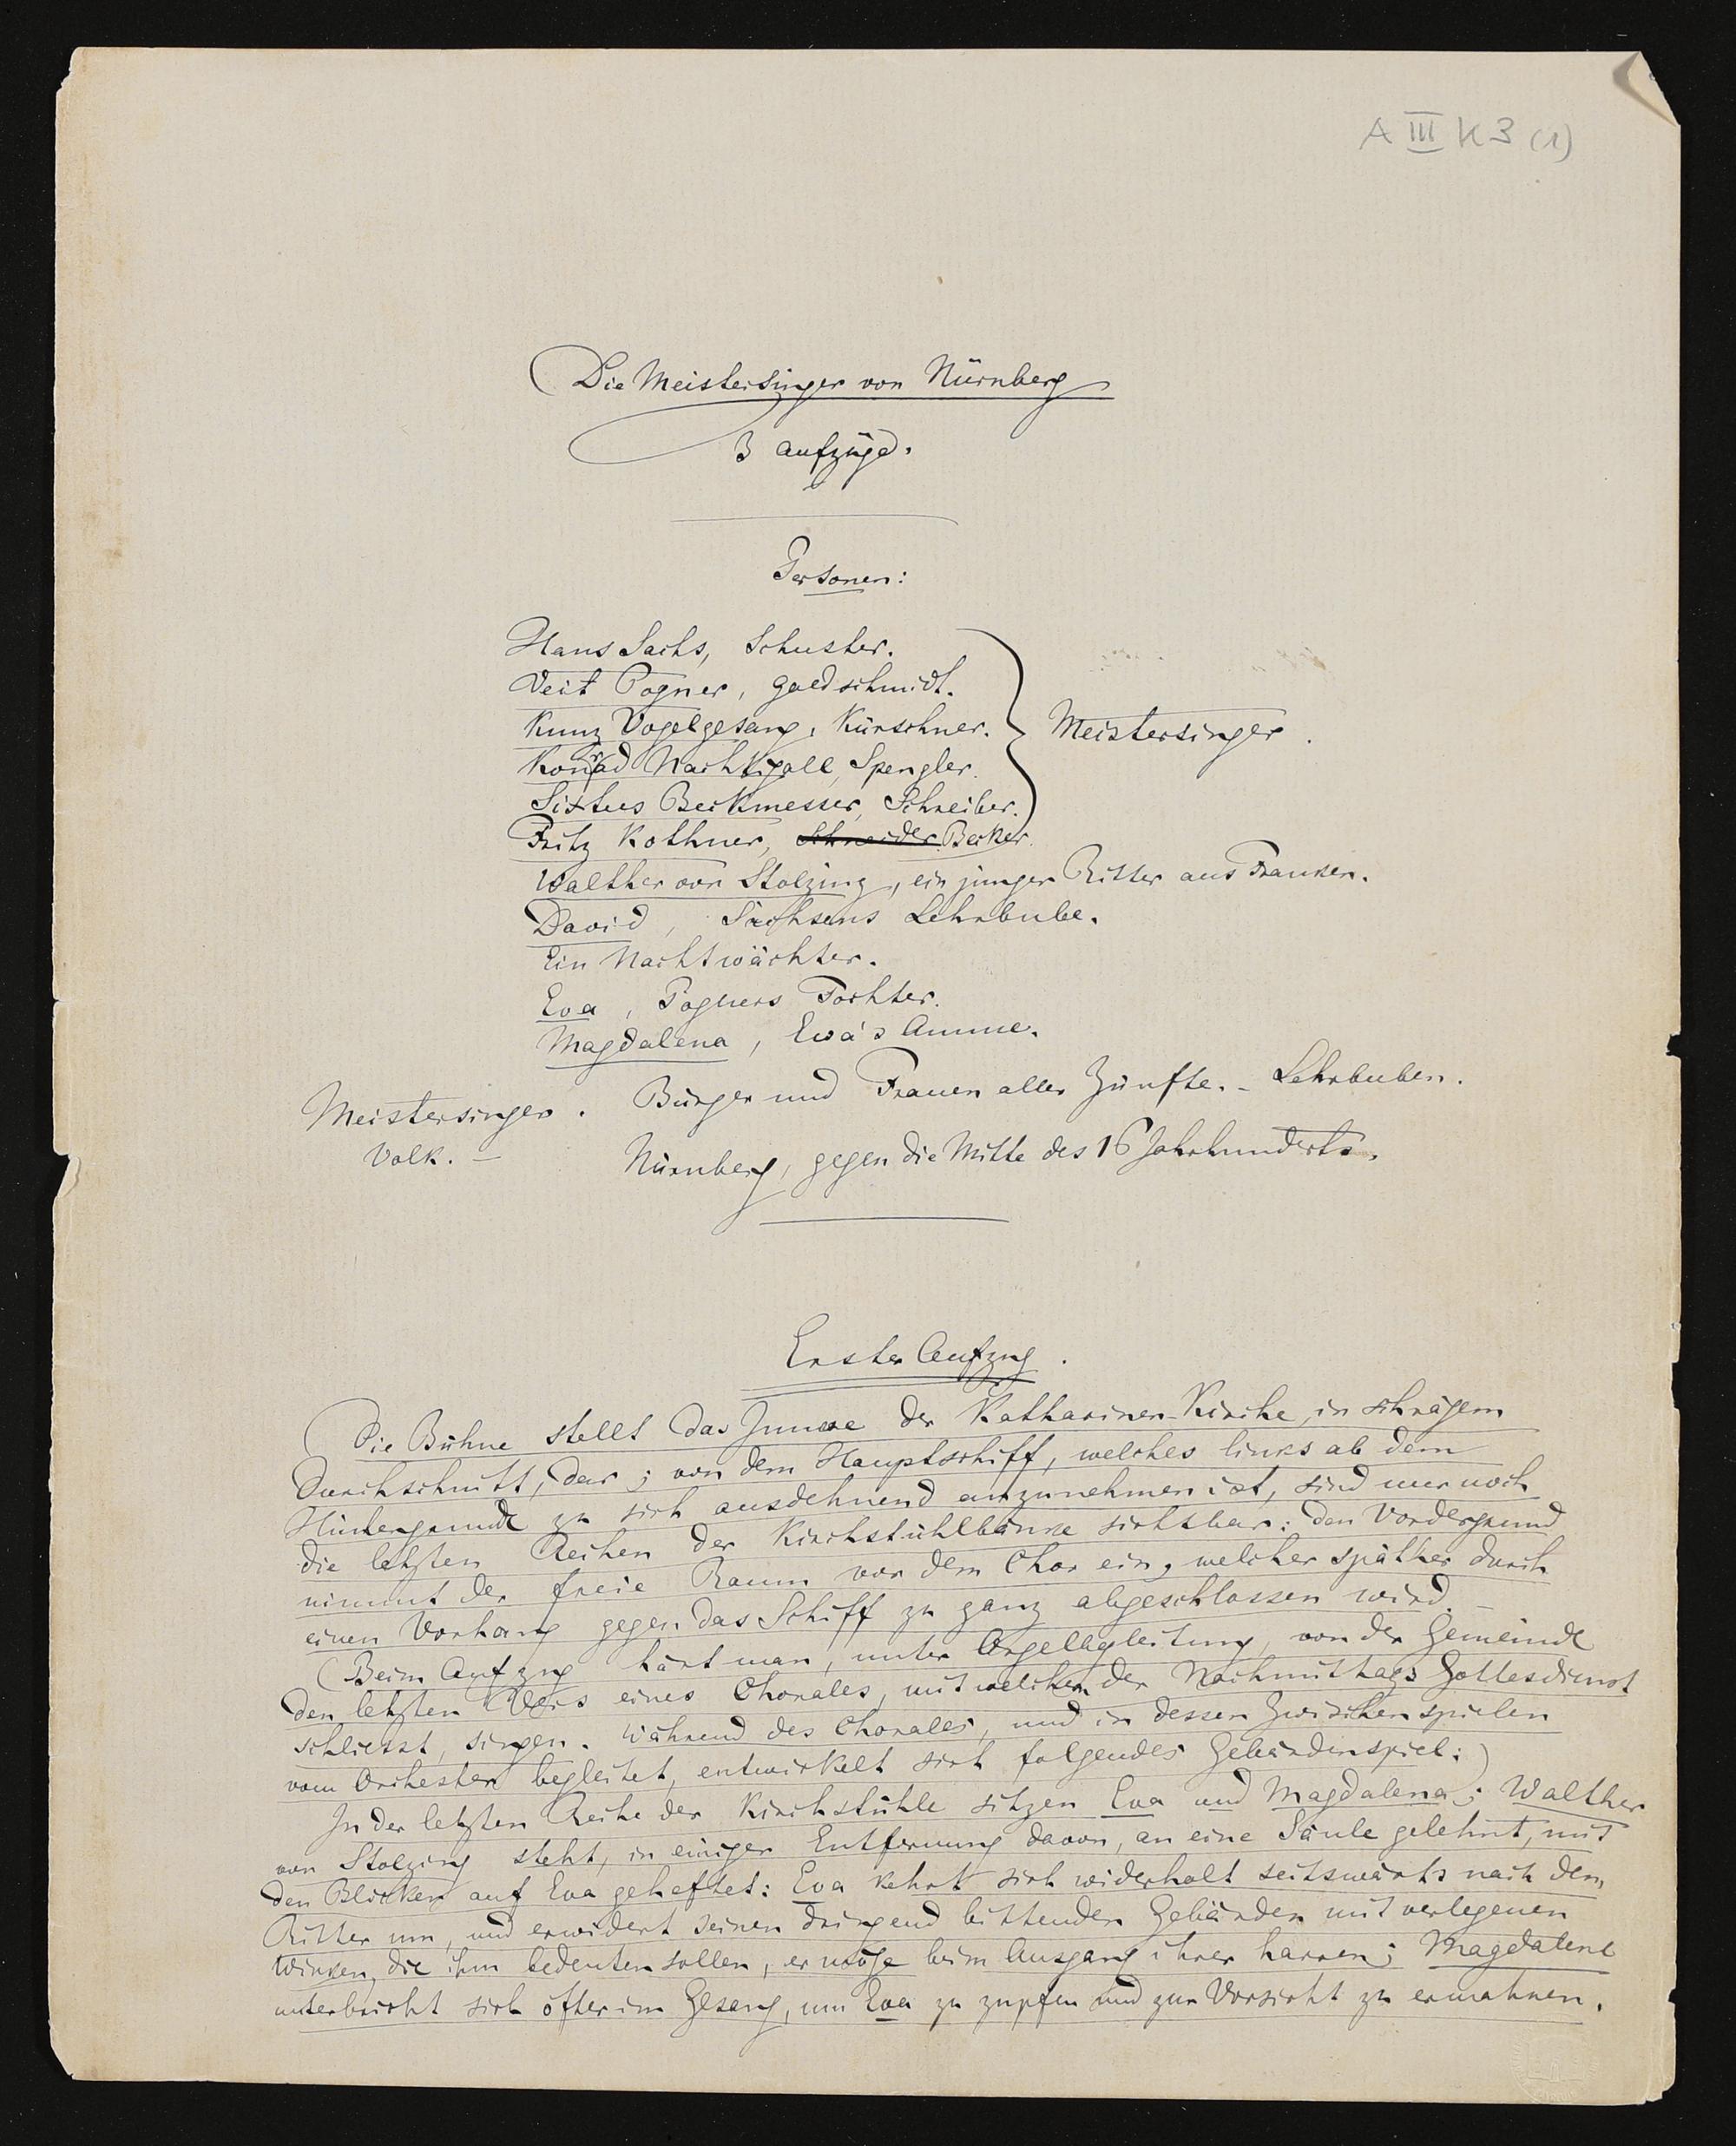 A III K 3 (1)
Die Meistersinger von Nürnberg
3 Aufzüge.
Personen:
Hans Sachs, Schuster.
Veit Pogner, Goldschmidt.
Kunz Vogelgesang, Kürschner.
Meistersinger.
Konrad Nachtigall, Spengler.
Sixtus Beckmesser, Schreiber.
Fritz Kothner, Schneider. Becker.
Walther von Stolzing, ein junger Ritter aus Franken.
David, Sachsens Lehrbube.
Ein Nachtwächter.
Eva, Pogners Tochter.
Magdalena, Eva's Amme.
Meistersinger. Bürger und Frauen aller Zünfte. – Lehrbuben.
Volk. –
Nürnberg, gegen die Mitte des 16 Jahrhunderts.
Erster Aufzug.
(Die Bühne stellt das Innere der Katharinen-Kirche, in schrägem
Durchschnitt, dar; von dem Hauptschiff, welches links ab dem
Hintergrunde zu sich ausdehnend anzunehmen ist, sind nur noch
die letzten Reihen der Kirchstühlbänke sichtbar: den Vordergrund
nimmt der freie Raum vor dem Chor ein, welcher später durch
einen Vorhang gegen das Schiff zu ganz abgeschlossen wird. –
(Beim Aufzug hört man, unter Orgelbegleitung, von der Gemeinde
den letzten Vers eines Chorales, mit welchem der Nachmittags Gottesdienst
schliesst, singen. Während des Chorales, und in dessen Zwischenspielen
vom Orchester begleitet, entwickelt sich folgendes Gebärdenspiel:)
In der letzten Reihe der Kirchstühle sitzen Eva und Magdalena; Walther
von Stolzing steht, in einiger Entfernung davon, an eine Säule gelehnt, mit
den Blicken auf Eva geheftet: Eva kehrt sich widerholt seitswärts nach dem
Ritter um, und erwidert seinen dringend bittenden Gebärden mit verlegenen
Winken, die ihm bedeuten sollen, er möge beim Ausgang ihrer harren; Magdalene
unterbricht sich öfter im Gesang, um Eva zu zupfen und zur Vorsicht zu ermahnen.